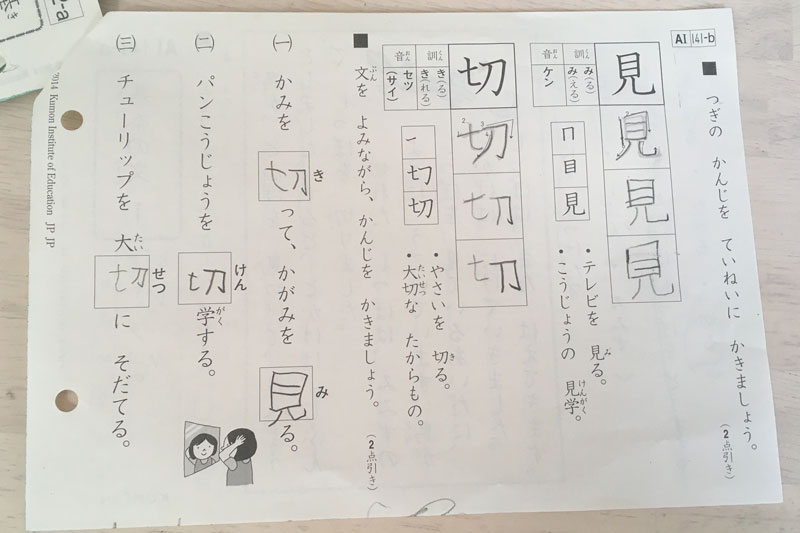 AI 141-b
■ つぎの かんじを ていねいに かきましょう。 (2点引き)
見 見 見 見
訓 み(る) み(える)
音 ケン
冂 目 見
・テレビを 見る。
・こうじょうの 見学。
切 切 切 切
訓 き(る) き(れる)
音 セツ (サイ)
一 切 切
・やさいを 切る。
・大切な たからもの。
■ 文を よみながら、かんじを かきましょう。 (2点引き)
(一) かみを 切って、かがみを 見る。
(二) パンこうじょうを 切学する。
(三) チューリップを 大切に そだてる。
2014 Kumon Institute of Education JP JP